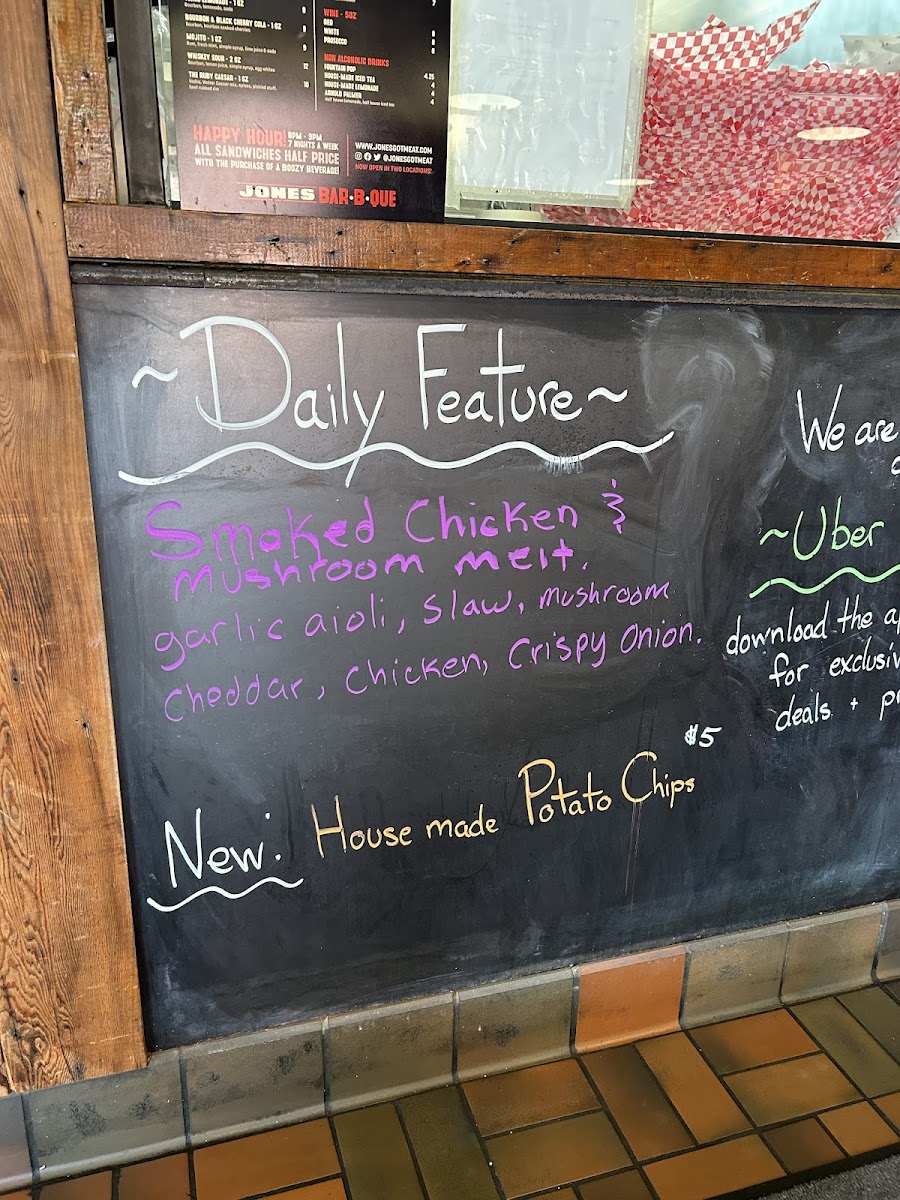 BOURBON & BLACK CHERRY COLA - 1 OZ
Bourbon, bourbon soaked cherries
MOJITO - 1 OZ
Rum, fresh mint, simple syrup, lime juice & soda
9
WHISKEY SOUR - 2 OZ
Bourbon, lemon juice, simple syrup, egg whites
12
THE RUBY CAESAR - 1 OZ
10
WINE - 5OZ
RED
WHITE
PROSECCO
NON ALCOHOLIC DRINKS
FOUNTAIN POP
4.25
HOUSE-MADE ICED TEA
4
HOUSE-MADE LEMONADE
4
ARNOLD PALMER
4
Half house lemonade, half house iced tea
HAPPY HOUR! 8PM - 9PM
7 NIGHTS A WEEK
ALL SANDWICHES HALF PRICE
WITH THE PURCHASE OF A BOOZY BEVERAGE!
WWW.JONESGOTMEAT.COM
@JONESGOTMEAT
NOW OPEN IN TWO LOCATIONS!
JONES BAR-B-QUE
~Daily Feature~
Smoked Chicken &
mushroom melt.
garlic aioli, slaw, mushroom
Cheddar, Chicken, Crispy Onion.
New: House made Potato Chips $5
We are
~Uber
download the
for
deals +